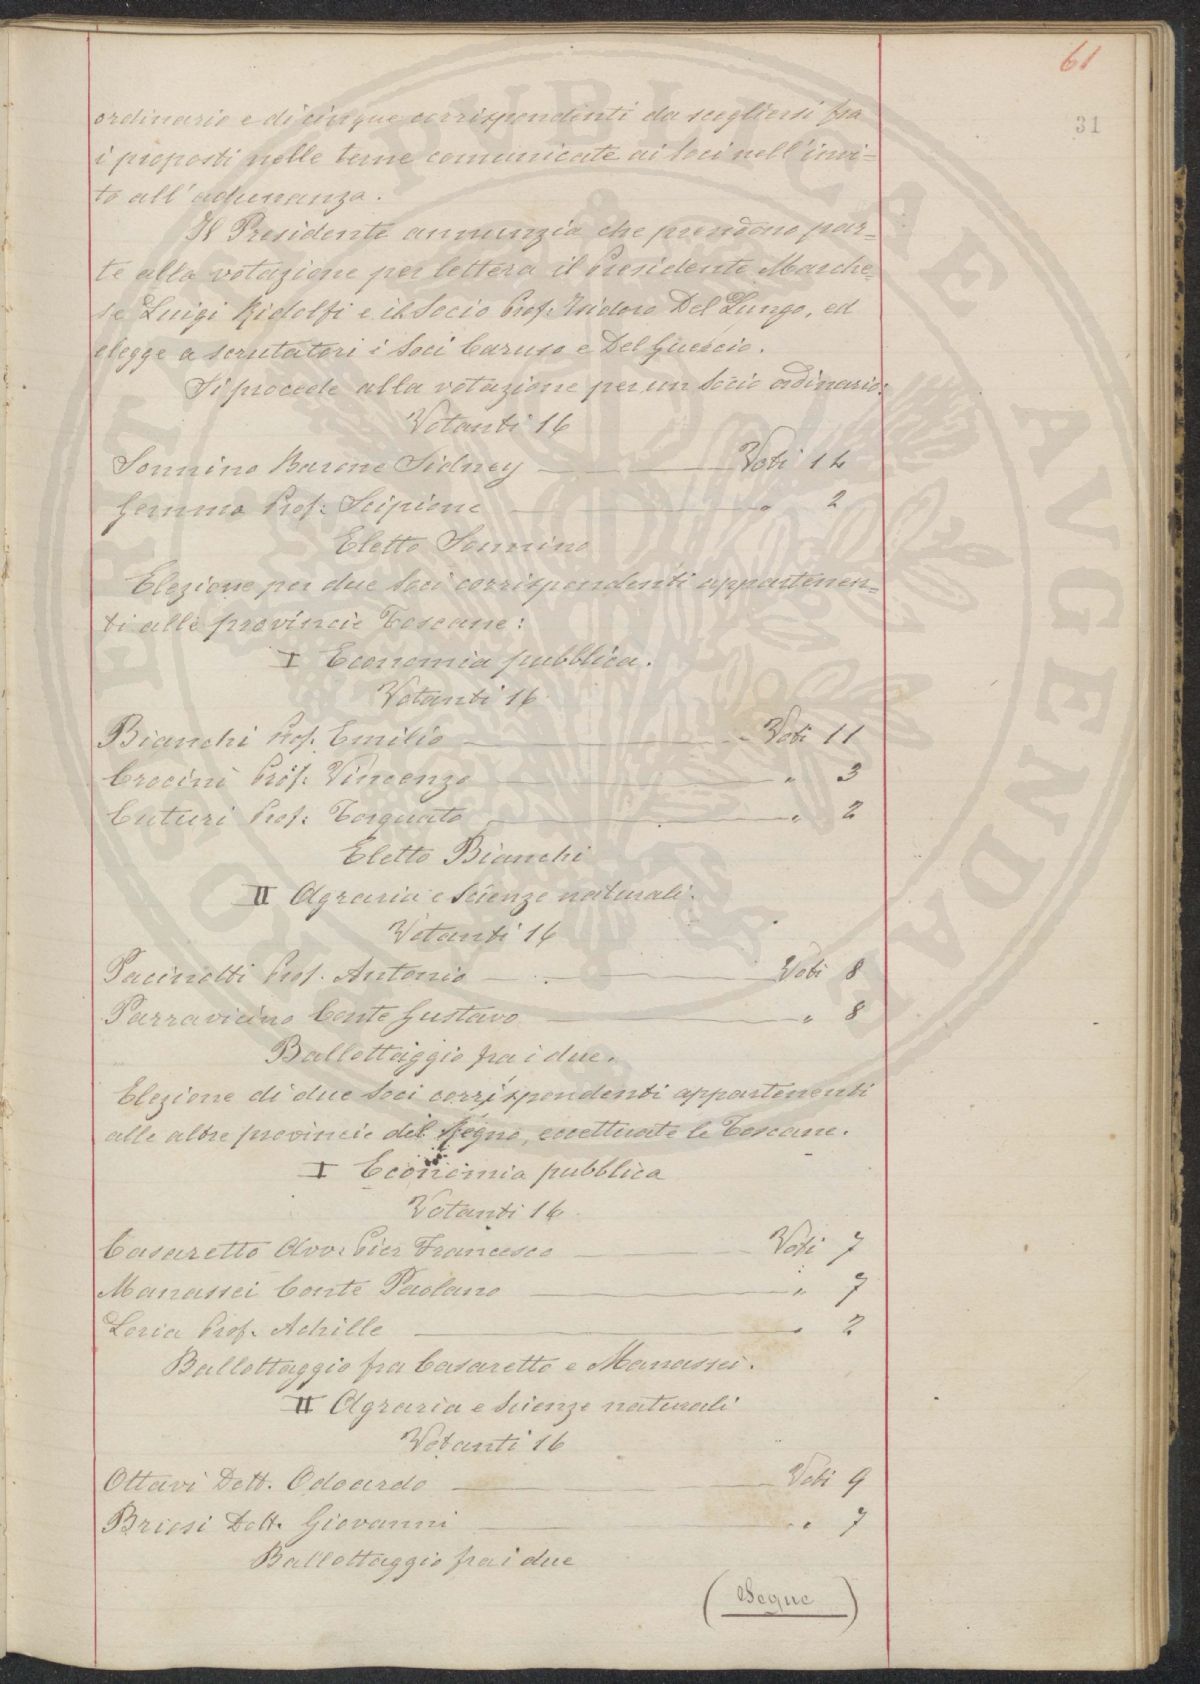 61
31
ordinario e di cinque corrispondenti da scegliersi fra
i proposti nelle terne comunicate ai Soci nell'invi=
to all'adunanza.
Il Presidente annunzia che prendono par=
te alla votazione per lettera il Presidente Marche=
se Luigi Ridolfi e il Socio Prof. Isidoro Del Lungo, ed
elegge a scrutatori i Soci Caruso e Del Guercio.
Si procede alla votazione per un Socio ordinario:
Votanti 16
Sonnino Barone Sidney ——— Voti 14
Gemma Prof. Scipione ——— " 2
Eletto Sonnino
Elezione per due Soci corrispondenti appartenen=
ti alle provincie Toscane:
I Economia pubblica.
Votanti 16
Bianchi Prof. Emilio ——— Voti 11
Crocini Prof. Vincenzo ——— " 3
Cuturi Prof. Torquato ——— " 2
Eletto Bianchi
II Agraria e Scienze naturali.
Votanti 16
Pacinotti Prof. Antonio ——— Voti 8
Parravicino Conte Gustavo ——— " 8
Ballottaggio fra i due.
Elezione di due Soci corrispondenti appartenenti
alle altre provincie del Regno, eccettuate le Toscane.
I Economia pubblica
Votanti 16
Casaretto Avv. Pier Francesco ——— Voti 7
Manassei Conte Paolano ——— " 7
Loria Prof. Achille ——— " 2
Ballottaggio fra Casaretto e Manassei.
II Agraria e Scienze naturali
Votanti 16
Ottavi Dott. Odoardo ——— Voti 9
Briosi Dott. Giovanni ——— " 7
Ballottaggio fra i due
(Segue)